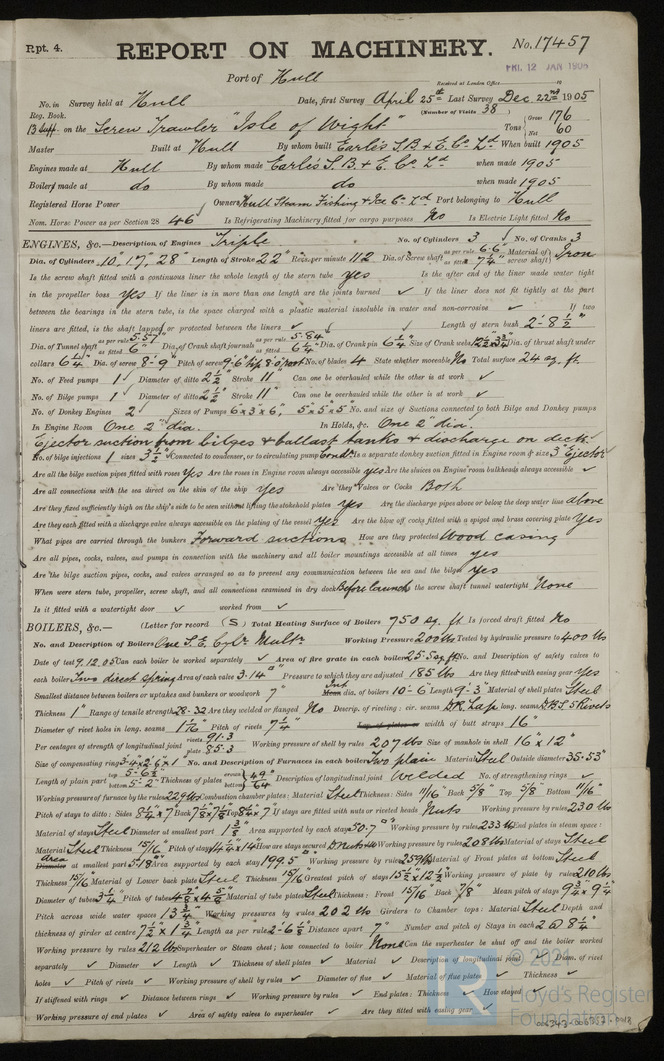 Rpt. 4.
REPORT ON MACHINERY.
No. 17457
FRI. 12 JAN 1906
Port of Hull
Received at London Office
No. in Survey held at Hull Date, first Survey April 25th Last Survey Dec. 22nd 1905
Reg. Book. (Number of Visits 38)
13 Supp. on the Screw Trawler "Isle of Wight" Tons Gross 176 Net 60
Master Built at Hull By whom built Earle's S.B. & E. Co Ltd When built 1905
Engines made at Hull By whom made Earle's S.B. & E. Co Ltd when made 1905
Boilers made at do By whom made do when made 1905
Registered Horse Power Owners Hull Steam Fishing & Ice Co Ltd Port belonging to Hull
Nom. Horse Power as per Section 28 46 Is Refrigerating Machinery fitted for cargo purposes No Is Electric Light fitted No
ENGINES, &c.— Description of Engines Triple No. of Cylinders 3 No. of Cranks 3
Dia. of Cylinders 10", 17", 28" Length of Stroke 22" Revs. per minute 112 Dia. of Screw shaft as per rule 6.6" as fitted 7 1/4" Material of screw shaft Iron
Is the screw shaft fitted with a continuous liner the whole length of the stern tube yes Is the after end of the liner made water tight
in the propeller boss yes If the liner is in more than one length are the joints burned ✓ If the liner does not fit tightly at the part
between the bearings in the stern tube, is the space charged with a plastic material insoluble in water and non-corrosive ✓ If two
liners are fitted, is the shaft lapped or protected between the liners ✓ Length of stern bush 2'-8 1/2"
Dia. of Tunnel shaft as per rule 5.57" as fitted 6" Dia. of Crank shaft journals as per rule 5.84 as fitted 6 1/4" Dia. of Crank pin 6 1/4" Size of Crank webs Dia. of thrust shaft under
collars 6 1/4" Dia. of screw 8'-9" Pitch of screw 9'-6" No. of blades 4 State whether moveable No Total surface 24 sq. ft.
No. of Feed pumps 1 Diameter of ditto 2 1/2" Stroke 11" Can one be overhauled while the other is at work ✓
No. of Bilge pumps 1 Diameter of ditto 2 1/2" Stroke 11" Can one be overhauled while the other is at work ✓
No. of Donkey Engines 2 Sizes of Pumps 6"x3"x6", 5"x5"x5" No. and size of Suctions connected to both Bilge and Donkey pumps
In Engine Room One 2" dia. In Holds, &c. One 2" dia.
Ejector suction from bilges & ballast tanks & discharge on deck.
No. of bilge injections 1 sizes 3 1/2" Connected to condenser, or to circulating pump Condr. Is a separate donkey suction fitted in Engine room & size 3" Ejector
Are all the bilge suction pipes fitted with roses Yes Are the roses in Engine room always accessible yes Are the sluices on Engine room bulkheads always accessible ✓
Are all connections with the sea direct on the skin of the ship Yes Are they Valves or Cocks Both
Are they fixed sufficiently high on the ship's side to be seen without lifting the stokehold plates Yes Are the discharge pipes above or below the deep water line above
Are they each fitted with a discharge valve always accessible on the plating of the vessel Yes Are the blow off cocks fitted with a spigot and brass covering plate Yes
What pipes are carried through the bunkers Forward suctions How are they protected Wood casing
Are all pipes, cocks, valves, and pumps in connection with the machinery and all boiler mountings accessible at all times yes
Are the bilge suction pipes, cocks, and valves arranged so as to prevent any communication between the sea and the bilges Yes
When were stern tube, propeller, screw shaft, and all connections examined in dry dock Before launch Is the screw shaft tunnel watertight None
Is it fitted with a watertight door ✓ worked from ✓
BOILERS, &c.— (Letter for record (S) Total Heating Surface of Boilers 750 sq. ft Is forced draft fitted No
No. and Description of Boilers One S.E. Cylr. Multr. Working Pressure 200 lbs Tested by hydraulic pressure to 400 lbs
Date of test 9.12.05 Can each boiler be worked separately ✓ Area of fire grate in each boiler 25.5 sq. ft. No. and Description of safety valves to
each boiler Two direct spring Area of each valve 3.14" Pressure to which they are adjusted 185 lbs Are they fitted with easing gear Yes
Smallest distance between boilers or uptakes and bunkers or woodwork 7" Int dia. of boilers 10'-6 Length 9'-3" Material of shell plates Steel
Thickness 1" Range of tensile strength 28-32 Are they welded or flanged No Descrip. of riveting: cir. seams D.R. Lap long. seams D.B.S. 5 Rivets
Diameter of rivet holes in long. seams 1 1/16" Pitch of rivets 7 1/4" Lap of plates or width of butt straps 16"
Per centages of strength of longitudinal joint rivets 91.3 plate 85.3 Working pressure of shell by rules 207 lbs Size of manhole in shell 16"x12"
Size of compensating ring No. and Description of Furnaces in each boiler Two plain Material Steel Outside diameter 35.53"
Length of plain part top 5'-6 1/2" bottom 5'-2" Thickness of plates crown bottom 49/64" Description of longitudinal joint Welded No. of strengthening rings ✓
Working pressure of furnace by the rules 229 lbs Combustion chamber plates: Material Steel Thickness: Sides 11/16" Back 5/8" Top 5/8" Bottom 11/16"
Pitch of stays to ditto: Sides 8 1/4"x7" Back 7 1/8"x7 1/8" Top 8 1/4"x7" If stays are fitted with nuts or riveted heads Nuts Working pressure by rules 230 lbs
Material of stays Steel Diameter at smallest part 1 3/8" Area supported by each stay 50.7" Working pressure by rules 233 lbs End plates in steam space:
Material Steel Thickness 15/16" Pitch of stays How are stays secured D. nuts Working pressure by rules 208 lbs Material of stays Steel
Area at smallest part 5.18" Area supported by each stay 199.5" Working pressure by rules 259 lbs Material of Front plates at bottom Steel
Thickness 15/16" Material of Lower back plate Steel Thickness 15/16" Greatest pitch of stays 15 1/2"x12 1/2" Working pressure of plate by rules 210 lbs
Diameter of tubes 3 1/4" Pitch of tubes Material of tube plates Steel Thickness: Front 15/16" Back 7/8" Mean pitch of stays 9 3/4"x9 1/4"
Pitch across wide water spaces 13 3/4" Working pressures by rules 202 lbs Girders to Chamber tops: Material Steel Depth and
thickness of girder at centre 7 1/2"x1 3/4" Length as per rule 2'-6 1/2" Distance apart 7" Number and pitch of Stays in each 2 @ 8 1/4"
Working pressure by rules 212 lbs Superheater or Steam chest; how connected to boiler None Can the superheater be shut off and the boiler worked
separately ✓ Diameter ✓ Length ✓ Thickness of shell plates ✓ Material ✓ Description of longitudinal joint ✓ Diam. of rivet
holes ✓ Pitch of rivets ✓ Working pressure of shell by rules ✓ Diameter of flue ✓ Material of flue plates ✓ Thickness ✓
If stiffened with rings ✓ Distance between rings ✓ Working pressure by rules ✓ End plates: Thickness ✓ How stayed ✓
Working pressure of end plates ✓ Area of safety valves to superheater ✓ Are they fitted with easing gear ✓
© 2021
Lloyd's Register
Foundation